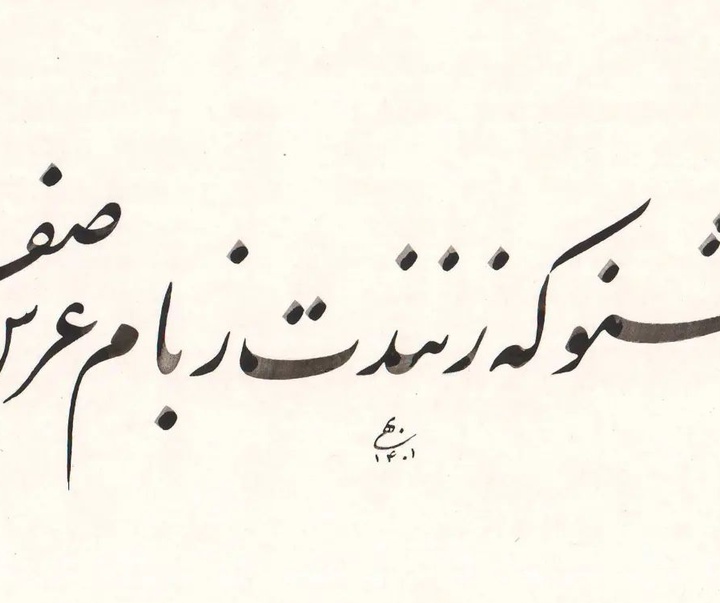 شنو که زنندت ز بام عرش صف
۱۴۰۱